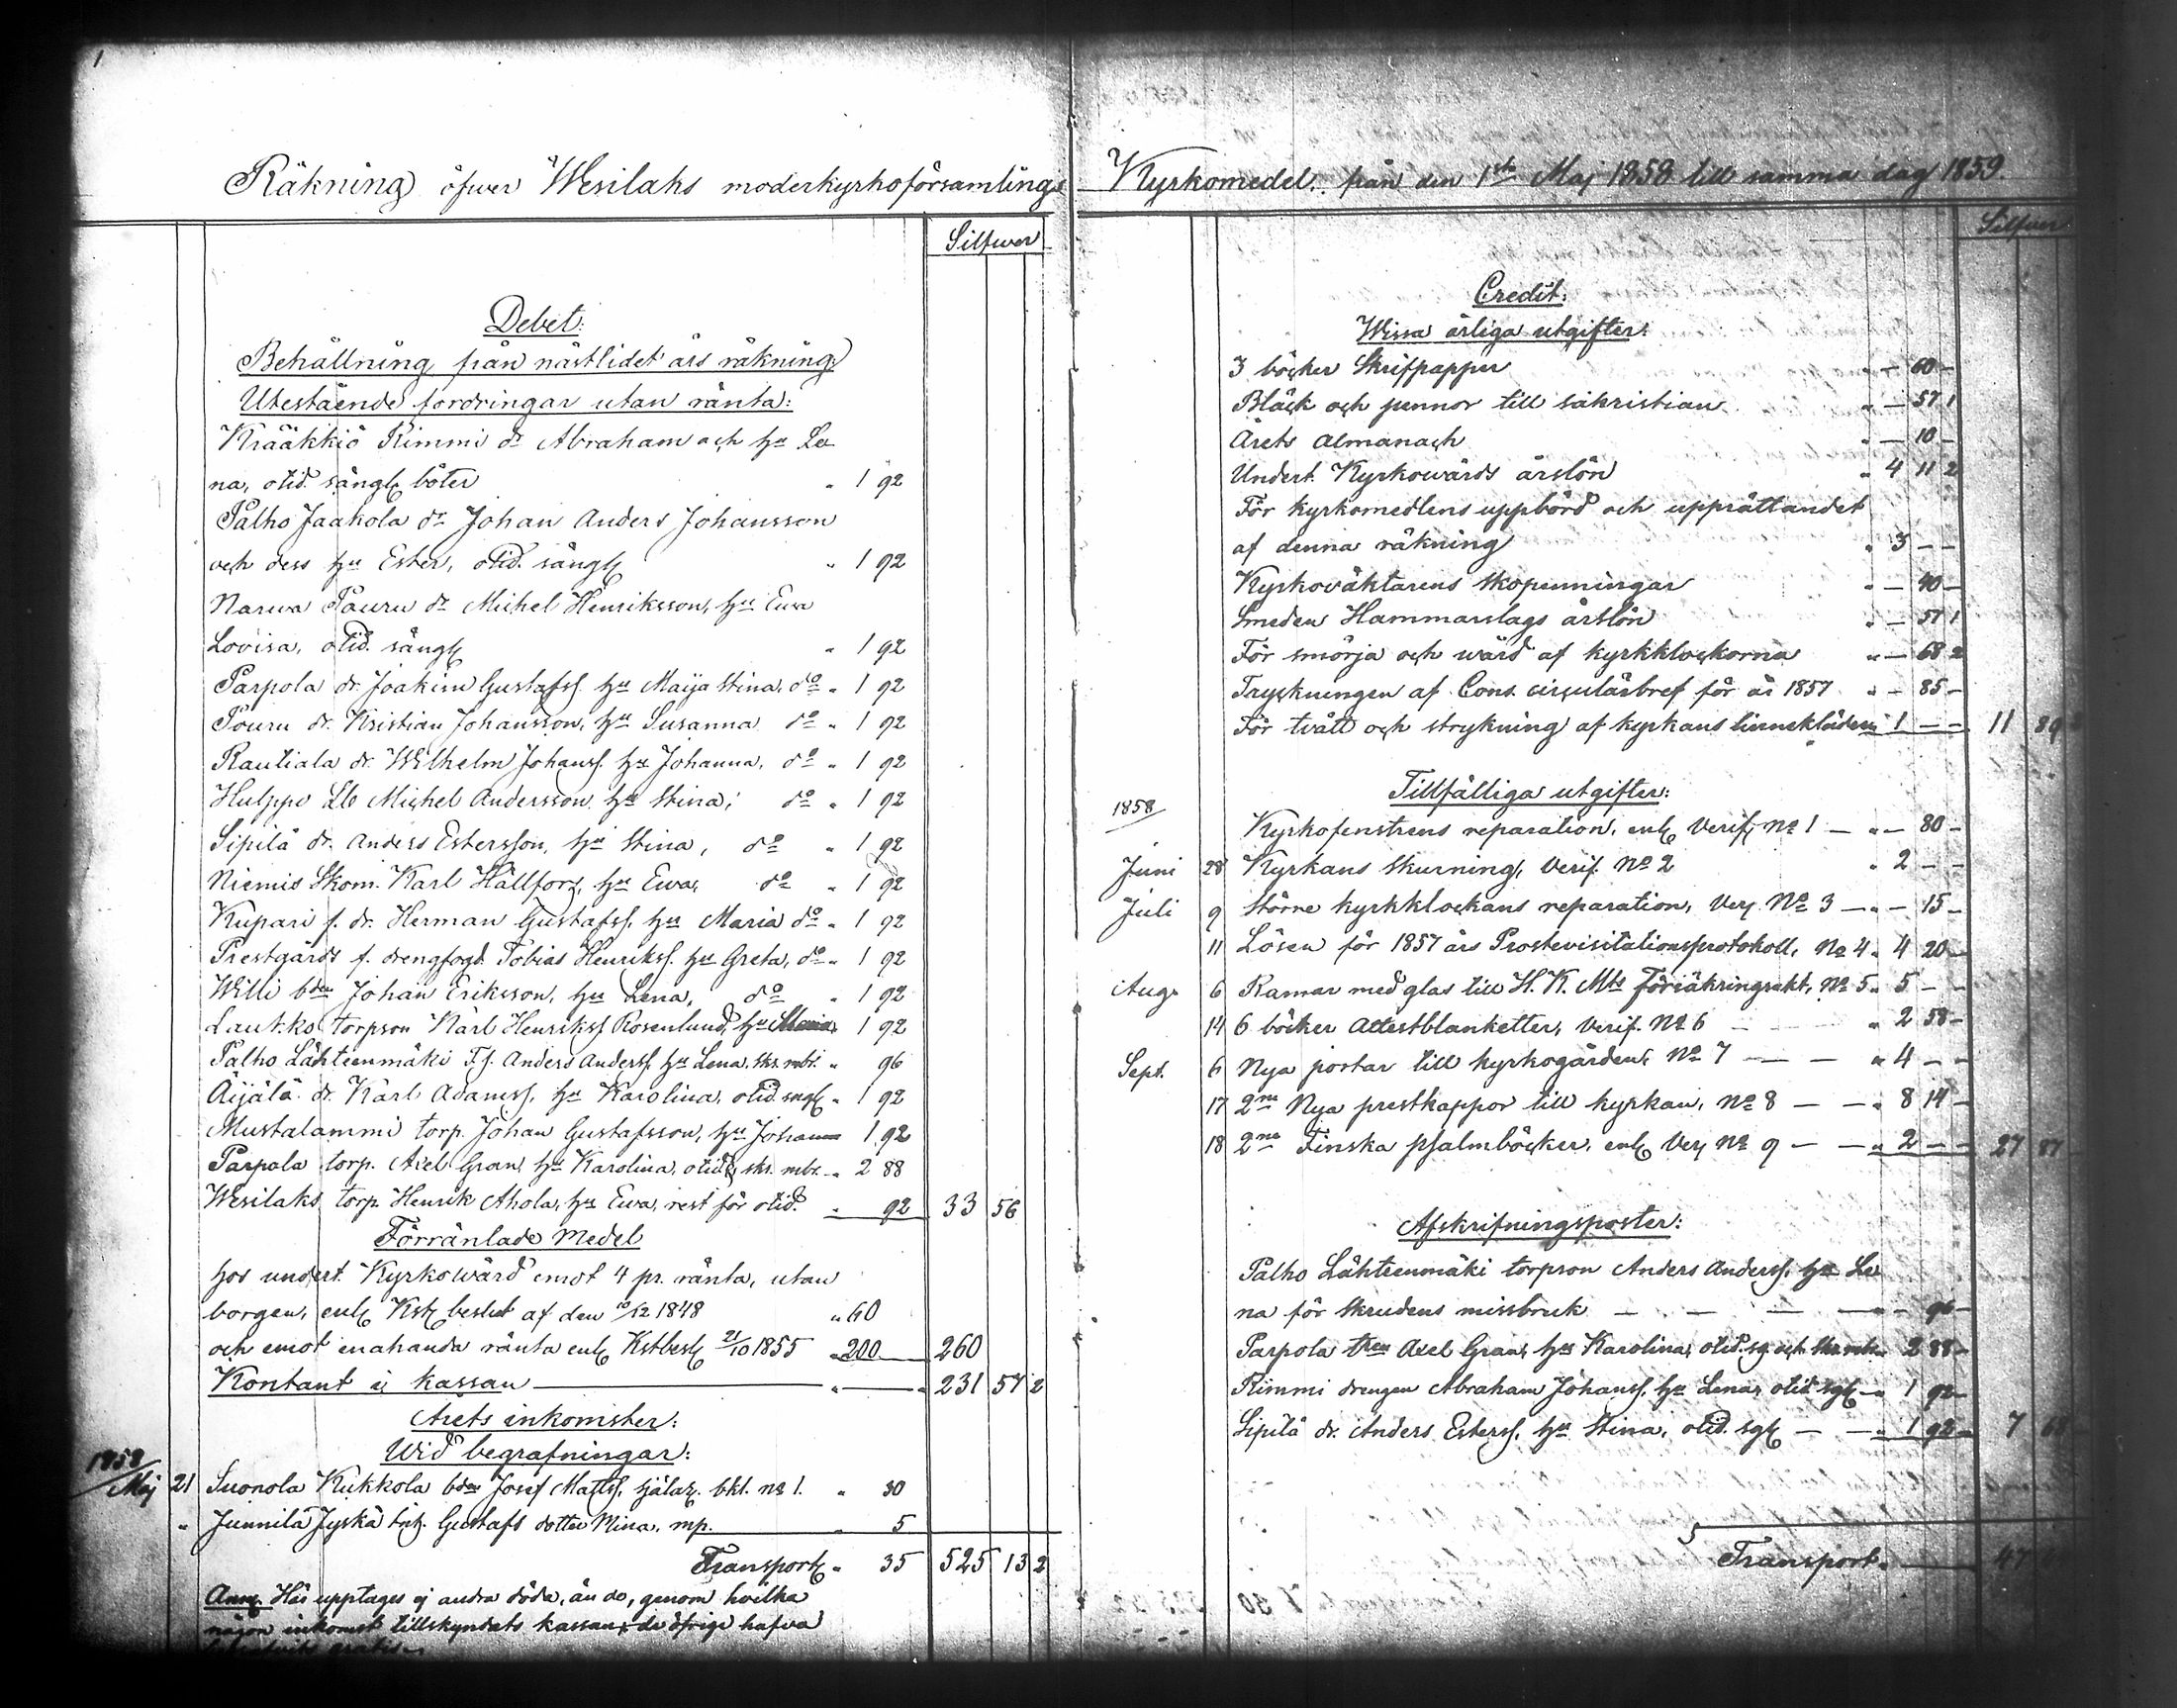 1
Räkning öfwer Wesilaks moderkyrkoförsamlings Kyrkomedel. från den 1sta Maj 1858 till samma dag 1859.
Silfwer
Debet:
Behållning från nästlidet års räkning
Utestående fordringar utan ränta:
Krääkkiö Rimmi dr Abraham och hu Le
na, otid. sängl. böter " 1 92
Palho Jaakola dr Johan Anders Johansson
och dess hu Ester, otid. sängl. " 1 92
Narwa Pouru dr Michel Henriksson, hu Ewa
Lovisa, otid. sängl. " 1 92
Parpola dr. Joakim Gustafss. hu Maija Stina, do " 1 92
Pouru dr. Kristian Johansson, hu Susanna do " 1 92
Rautiala dr. Wilhelm Johanss. hu Johanna, do " 1 92
Hulppo Michel Andersson hu Stina, do " 1 92
Sipilä dr. Anders Estersson, hu Stina, do " 1 92
Niemis Skom. Karl Hällfors, hu Ewa, do " 1 92
Kupari f. dr. Herman Gustafss. hu Maria do " 1 92
Prestgårds f. drengfogd. Tobias Henrikss. hu Greta, do " 1 92
Willi bden Johan Eriksson, hu Lena, do " 1 92
Laukko torpson Karl Henrikss. Rosenlund, hu Maria 1 92
Palho Lähteenmäki Anders Anderss. hu Lena, skr. mbr. " 96
Äijälä dr. Karl Adamss. hu Karolina, otid. sngl. " 1 92
Mustalammi torp. Johan Gustafsson, hu Johanna 1 92
Parpola torp. Axel Gran, hu Karolina, otid. skr. mbr. " 2 88
Wesilaks torp. Henrik Ahola, hu Ewa, rest för otid. " 92 33 56
Förräntade Medel
hos undert. Kyrkowärd emot 4 pr. ränta, utan
borgen, enl. Kst. beslut af den 10/12 1848 " 60
och emot enahanda ränta enl. Kstbesl. 21/10 1855 " 200 260
Kontant i kassan " 231 57 2
Årets inkomster:
Wid begrafningar:
1858
Maj 21 Suonola Kukkola bden Josef Matts. själar. bkl. No 1. " 30
" Junnila Jyskä Gustafs dotter Mina, mp. " 5
Transport " 35 525 13 2
Anm. Här upptages ej andra döda, än de, genom hvilka
någon inkomst tillskyndats kassan; de öfrige hafva
gratis.
Silfwer
Credit:
Wissa årliga utgifter:
3 böcker Skrifpapper " — 60 —
Bläck och pennor till sakristian " — 57 1
Årets Almanach " — 10 —
Undert. Kyrkowärds årslön " 4 11 2
För kyrkomedlens uppbörd och upprättandet
af denna räkning " 3 — —
Kyrkoväktarens skopenningar " — 40 —
Smeden Hammarslags årslön " — 57 1
För smörja och wård af kyrkklockorna " — 68 2
Tryckningen af Cons. cirkulärbref för år 1857 " — 85 —
För tvätt och strykning af kyrkans linnekläder " 1 — — 11 89
Tillfälliga utgifter:
1858
Kyrkofenstrens reparation, enl. Verif. No 1 — " — 80 —
Juni 28 Kyrkans skurning, Verif. No 2 " 2 — —
Juli 9 Större kyrkklockans reparation, Ver. No 3 — " — 15 —
11 Lösen för 1857 års Prostevisitationsprotokoll, No 4 " 4 20 —
Aug. 6 Ramar med glas till H. K. Mts Försäkringsakt, No 5 " 5 — —
14 6 böcker Attestblanketter, Verif. No 6 — " 2 58 —
Sept. 6 Nya portar till kyrkogården, No 7 — — " 4 — —
17 2ne Nya prestkappor till kyrkan, No 8 — — " 8 14 —
18 2ne Finska psalmböcker, enl. Ver. No 9 — — " 2 — — 27 87
Afskrifningsposter:
Palho Lähteenmäki torpson Anders Anderss. hu Le
na för Skrudens missbruk — — — — " — 96 —
Parpola Axel Gran, hu Karolina, otid. sg. och Skr. mbr. " 2 88 —
Rimmi drengen Abraham Johanss. hu Lena, otid. sgl. — " 1 92 —
Sipilä dr. Anders Esterss. hu Stina, otid. sgl. — — " 1 92 — 7 6
Transport " 47